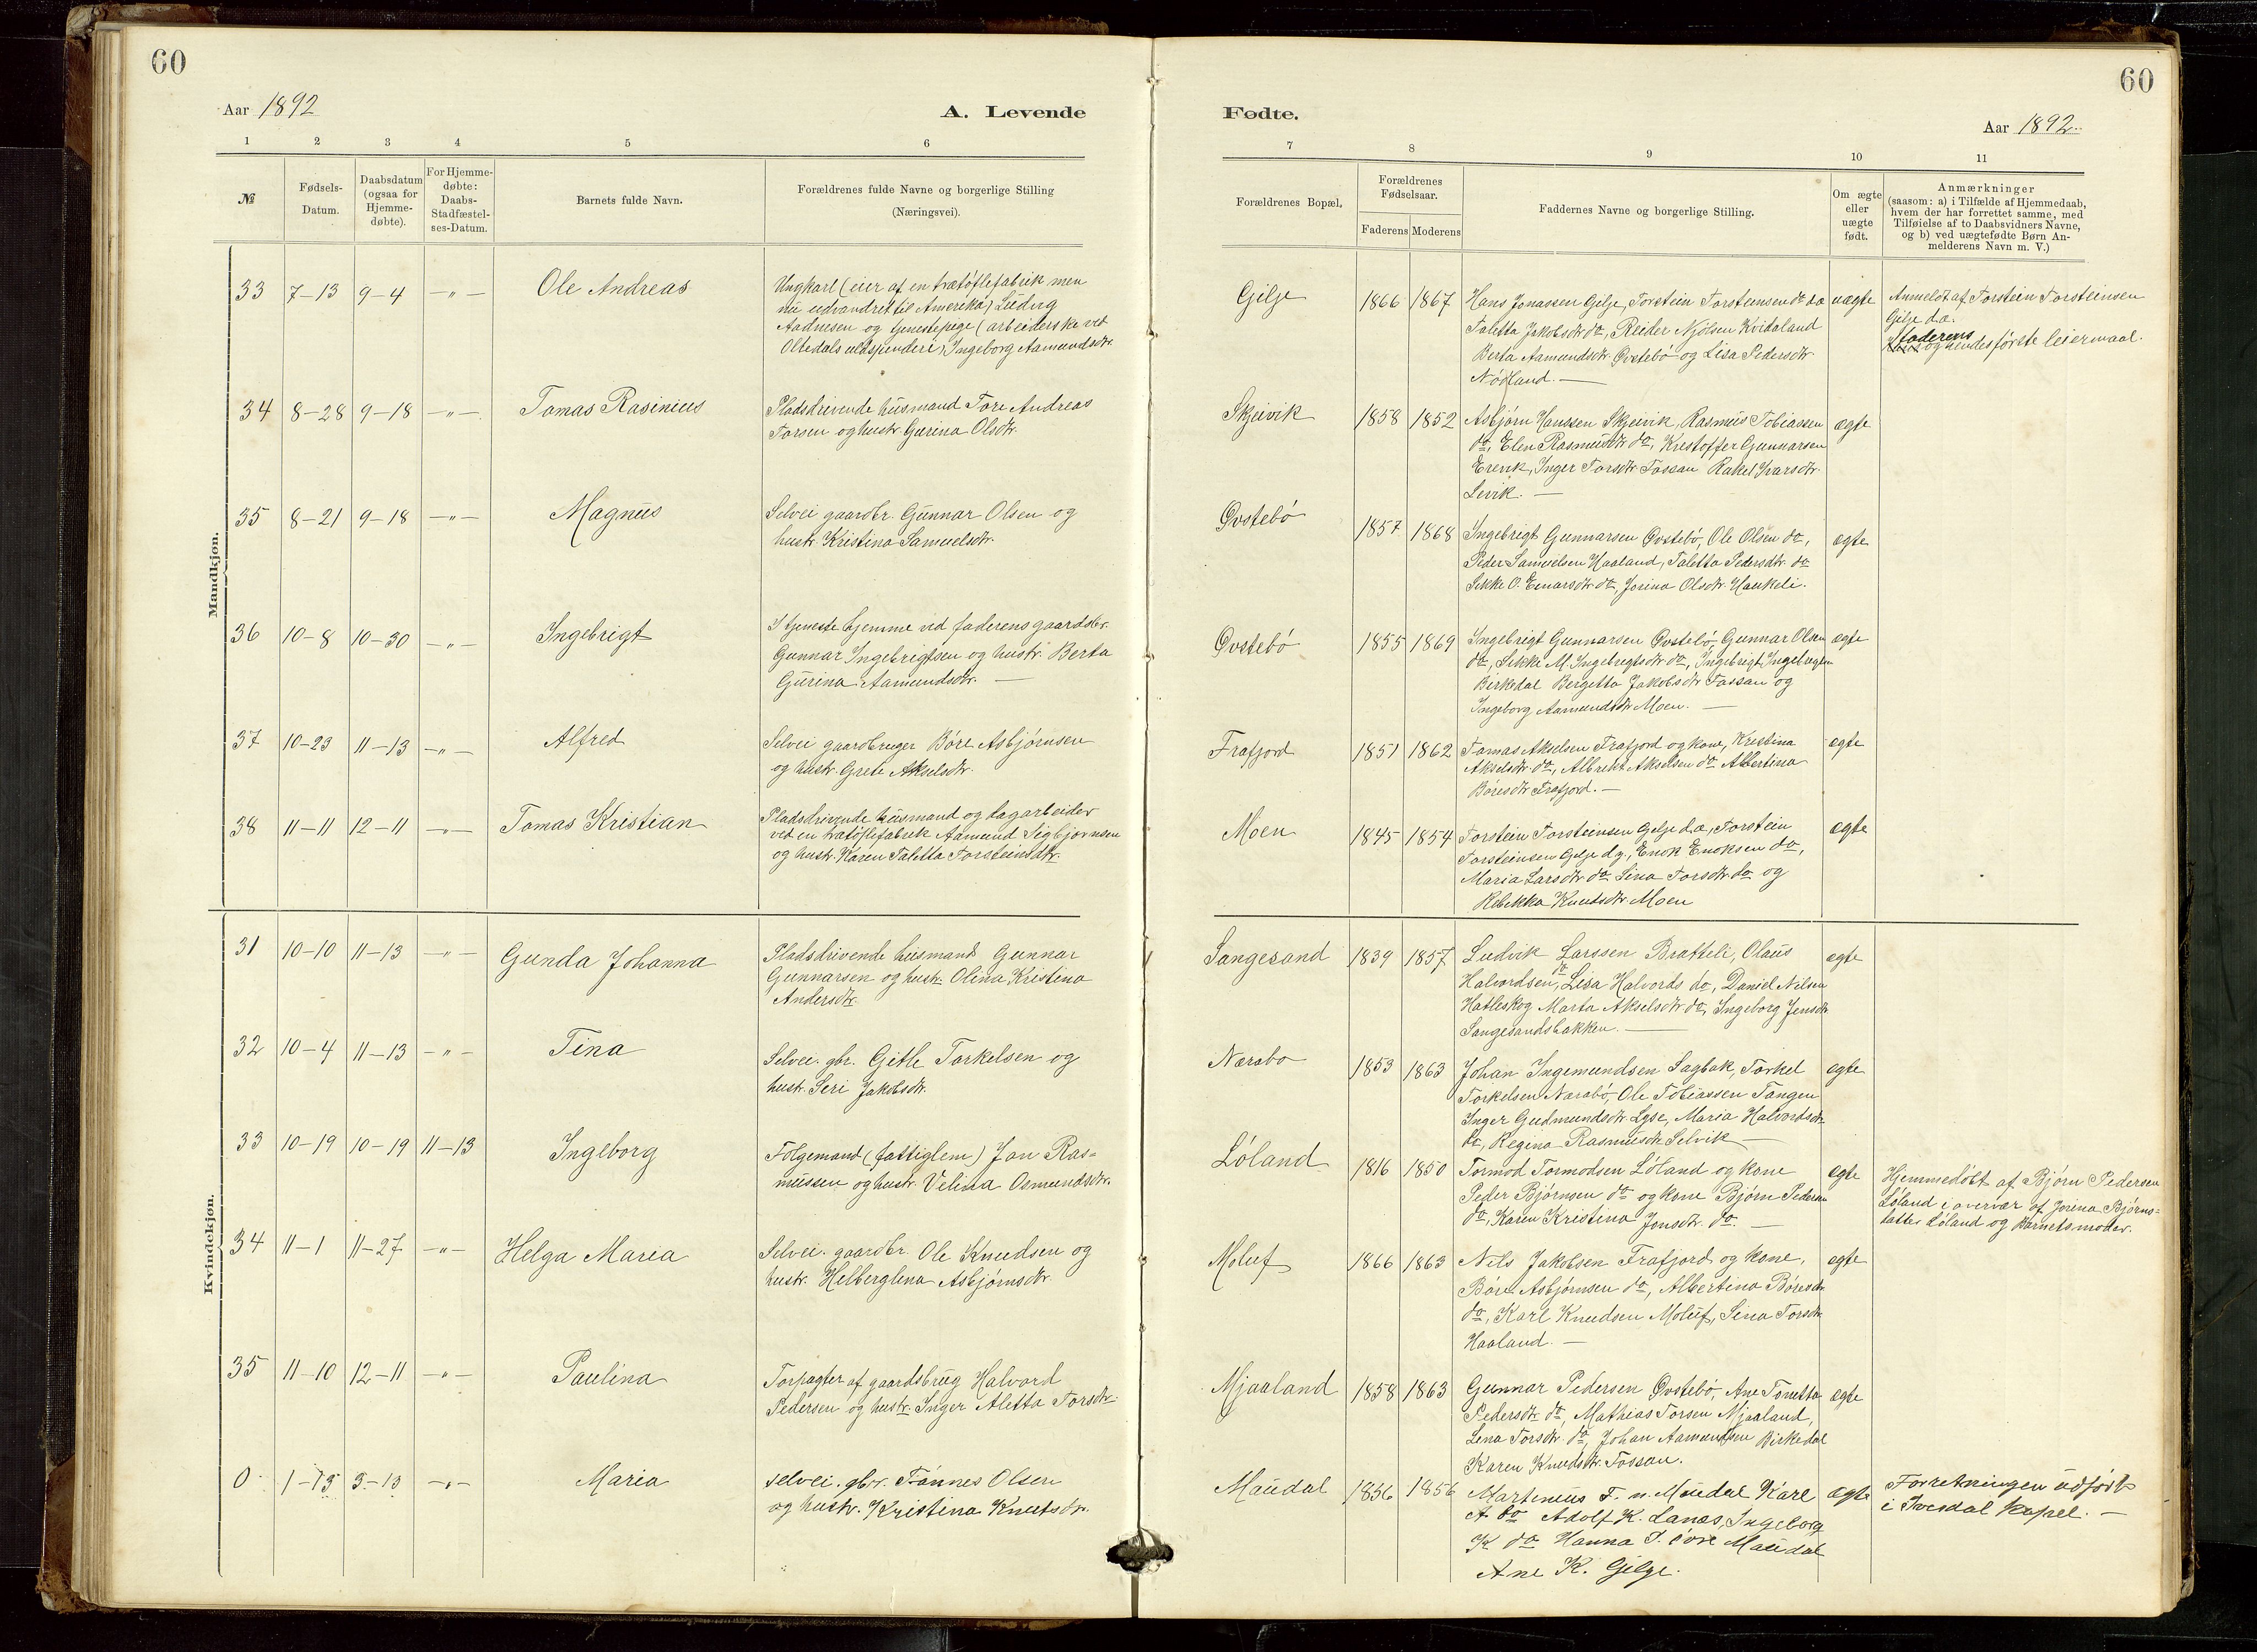 60
Aar 1892
A. Levende
1 2 3 4 5 6
№
Fødsels-
Datum.
Daabsdatum
(ogsaa for
Hjemme-
døbte).
For Hjemme-
døbte:
Daabs-
Stadfæstel-
ses-Datum.
Barnets fulde Navn.
Forældrenes fulde Navne og borgerlige Stilling
(Næringsvei).
Mandkjøn.
33 7-13 9-4 -„- Ole Andreas
Ungkarl (eier af en trætøflefabrik men
nu udvandret til Amerika) Ludvig
Aadnesen og tjenestepige (arbeiderske ved
Oltedals uldspinderi) Ingeborg Aamundsdtr.
34 8-28 9-18 -„- Tomas Rasinius
Pladsdrivende husmand Tore Andreas
Torsen og hustr. Gurina Olsdtr.
35 8-21 9-18 -„- Magnus
Selvei gaardbr. Gunnar Olsen og
hustr. Kristina Samuelsdtr.
36 10-8 10-30 -„- Ingebrigt
I tjeneste hjemme ved faderens gaardsbr.
Gunnar Ingebrigtsen og hustr. Berta
Gurina Aamundsdtr. —
37 10-23 11-13 -„- Alfred
Selvei gaardbruger Børe Asbjørnsen
og hustr. Grete Akselsdtr.
38 11-11 12-11 -„- Tomas Kristian
Pladsdrivende husmand og dagarbeider
ved en trætøflefabrik Aamund Sigbjørnsen
og hustr. Karen Taletta Torsteinsdtr.
Kvindekjøn.
31 10-10 11-13 -„- Gunda Johanna
Pladsdrivende husmand Gunnar
Gunnarsen og hustr. Olina Kristina
Andersdtr.
32 10-4 11-13 -„- Tina
Selvei. gbr. Gitle Torkelsen og
hustr. Seri Jakobsdtr.
33 10-19 10-19 11-13 Ingeborg
Følgemand (fattiglem) Jon Ras-
mussen og hustr. Velina Osmundsdtr.
34 11-1 11-27 -„- Helga Maria
Selvei. gaardbr. Ole Knudsen og
hustr. Helberglena Asbjørnsdtr.
35 11-10 12-11 -„- Paulina
Forpagter af gaardsbrug Halvord
Pedersen og hustr. Inger Aletta Torsdtr.
0 1-13 3-13 -„- Maria
selvei. gbr. Tønnes Olsen
og hustr. Kristina Knutsdtr.
60
Fødte.
Aar 1892.
7 8 9 10 11
Forældrenes Bopæl.
Forældrenes
Fødselsaar.
Faderens Moderens
Faddernes Navne og borgerlige Stilling.
Om ægte
eller
uægte
født.
Anmærkninger
(saasom: a) i Tilfælde af Hjemmedaab,
hvem der har forrettet samme, med
Tilføielse af to Daabsvidners Navne,
og b) ved uægtefødte Børn An-
melderens Navn m. V.)
Gilje 1866 1867 Hans Jonassen Gilje, Torstein Torsteinsen do d.æ. uægte
Taletta Jakobsdtr do, Reider Njølsen Kvidaland
Berta Aamundsdtr. Øvstebø og Lisa Pedersdtr.
Nødland. —
Anmeldt af Torstein Torsteinsen
Gilje d.æ.
faderens
og hendes første leiermaal.
Skjeivik 1858 1852 Asbjørn Hanssen Skjeivik, Rasmus Tobiassen ægte
do, Elen Rasmusdtr. do, Kristoffer Gunnarsen
Erevik, Inger Torsdtr. Fossan Rakel Ivarsdtr.
Levik. —
Øvstebø 1857 1868 Ingebrigt Gunnarsen Øvstebø, Ole Olsen do, ægte
Peder Samuelsen Haaland, Taletta Pedersdtr. do
Sikke O. Einarsdtr. do, Jorina Olsdtr. Haukeli.
Øvstebø 1855 1869 Ingebrigt Gunnarsen Øvstebø, Gunnar Olsen ægte
do, Sikke M. Ingebrigtsdtr. do, Ingebrigt Ingebrigtsen
Birkedal Bergetta Jakobsdtr. Fossan og
Ingeborg Aamundsdtr. Moen. —
Frafjord 1851 1862 Tomas Akselsen Frafjord og kone, Kristina ægte
Akselsdtr. do, Albrekt Akselsen do Albertina
Børesdtr. Frafjord. —
Moen 1845 1854 Torstein Torsteinsen Gilje d.æ., Torstein ægte
Torsteinsen Gilje d.y., Enok Enoksen do,
Maria Larsdtr. do Sina Torsdtr. do og
Rebekka Knudsdtr. Moen
Sangesand 1839 1857 Ludvik Larssen Bratteli, Olaus ægte
Halvordsen do, Lisa Halvords do, Daniel Nilsen
Hatleskog Marta Akselsdtr. do, Ingeborg Jensdtr.
Sangesandsbakken. —
Nærabø 1853 1863 Johan Ingemundsen Sagbak, Torkel ægte
Torkelsen Nærabø, Ole Tobiassen Tangen
Inger Gudmundsdtr. Lyse, Maria Halvordsdtr.
do, Regina Rasmusdtr. Selvik —
Løland 1816 1850 Tormod Tormodsen Løland og kone ægte
Peder Bjørnsen do og kone Bjørn Pedersen
do, Karen Kristina Jonsdtr. do. —
Hjemmedøbt af Bjørn Pedersen
Løland i overvær af Jorina Bjørns-
datter Løland og barnets moder.
Moluf 1866 1863 Nils Jakobsen Frafjord og kone, ægte
Børe Asbjørnsen do, Albertina Børesdtr.
do, Karl Knudsen Moluf, Sina Torsdtr.
Haaland. —
Mjaaland 1858 1863 Gunnar Pedersen Øvstebø, Ane Tonetta ægte
Pedersdtr. do, Mathias Torsen Mjaaland,
Lena Torsdtr. do, Johan Aamundsen Birkedal
Karen Knudsdtr. Fossan.
Maudal 1856 1856 Martenius T. n. Maudal Karl ægte
A. do Adolf K. Lanes, Ingeborg
K do Hanna T. øvre Maudal
Ane K. Gilje.
Forretningen udført
i kapel. —